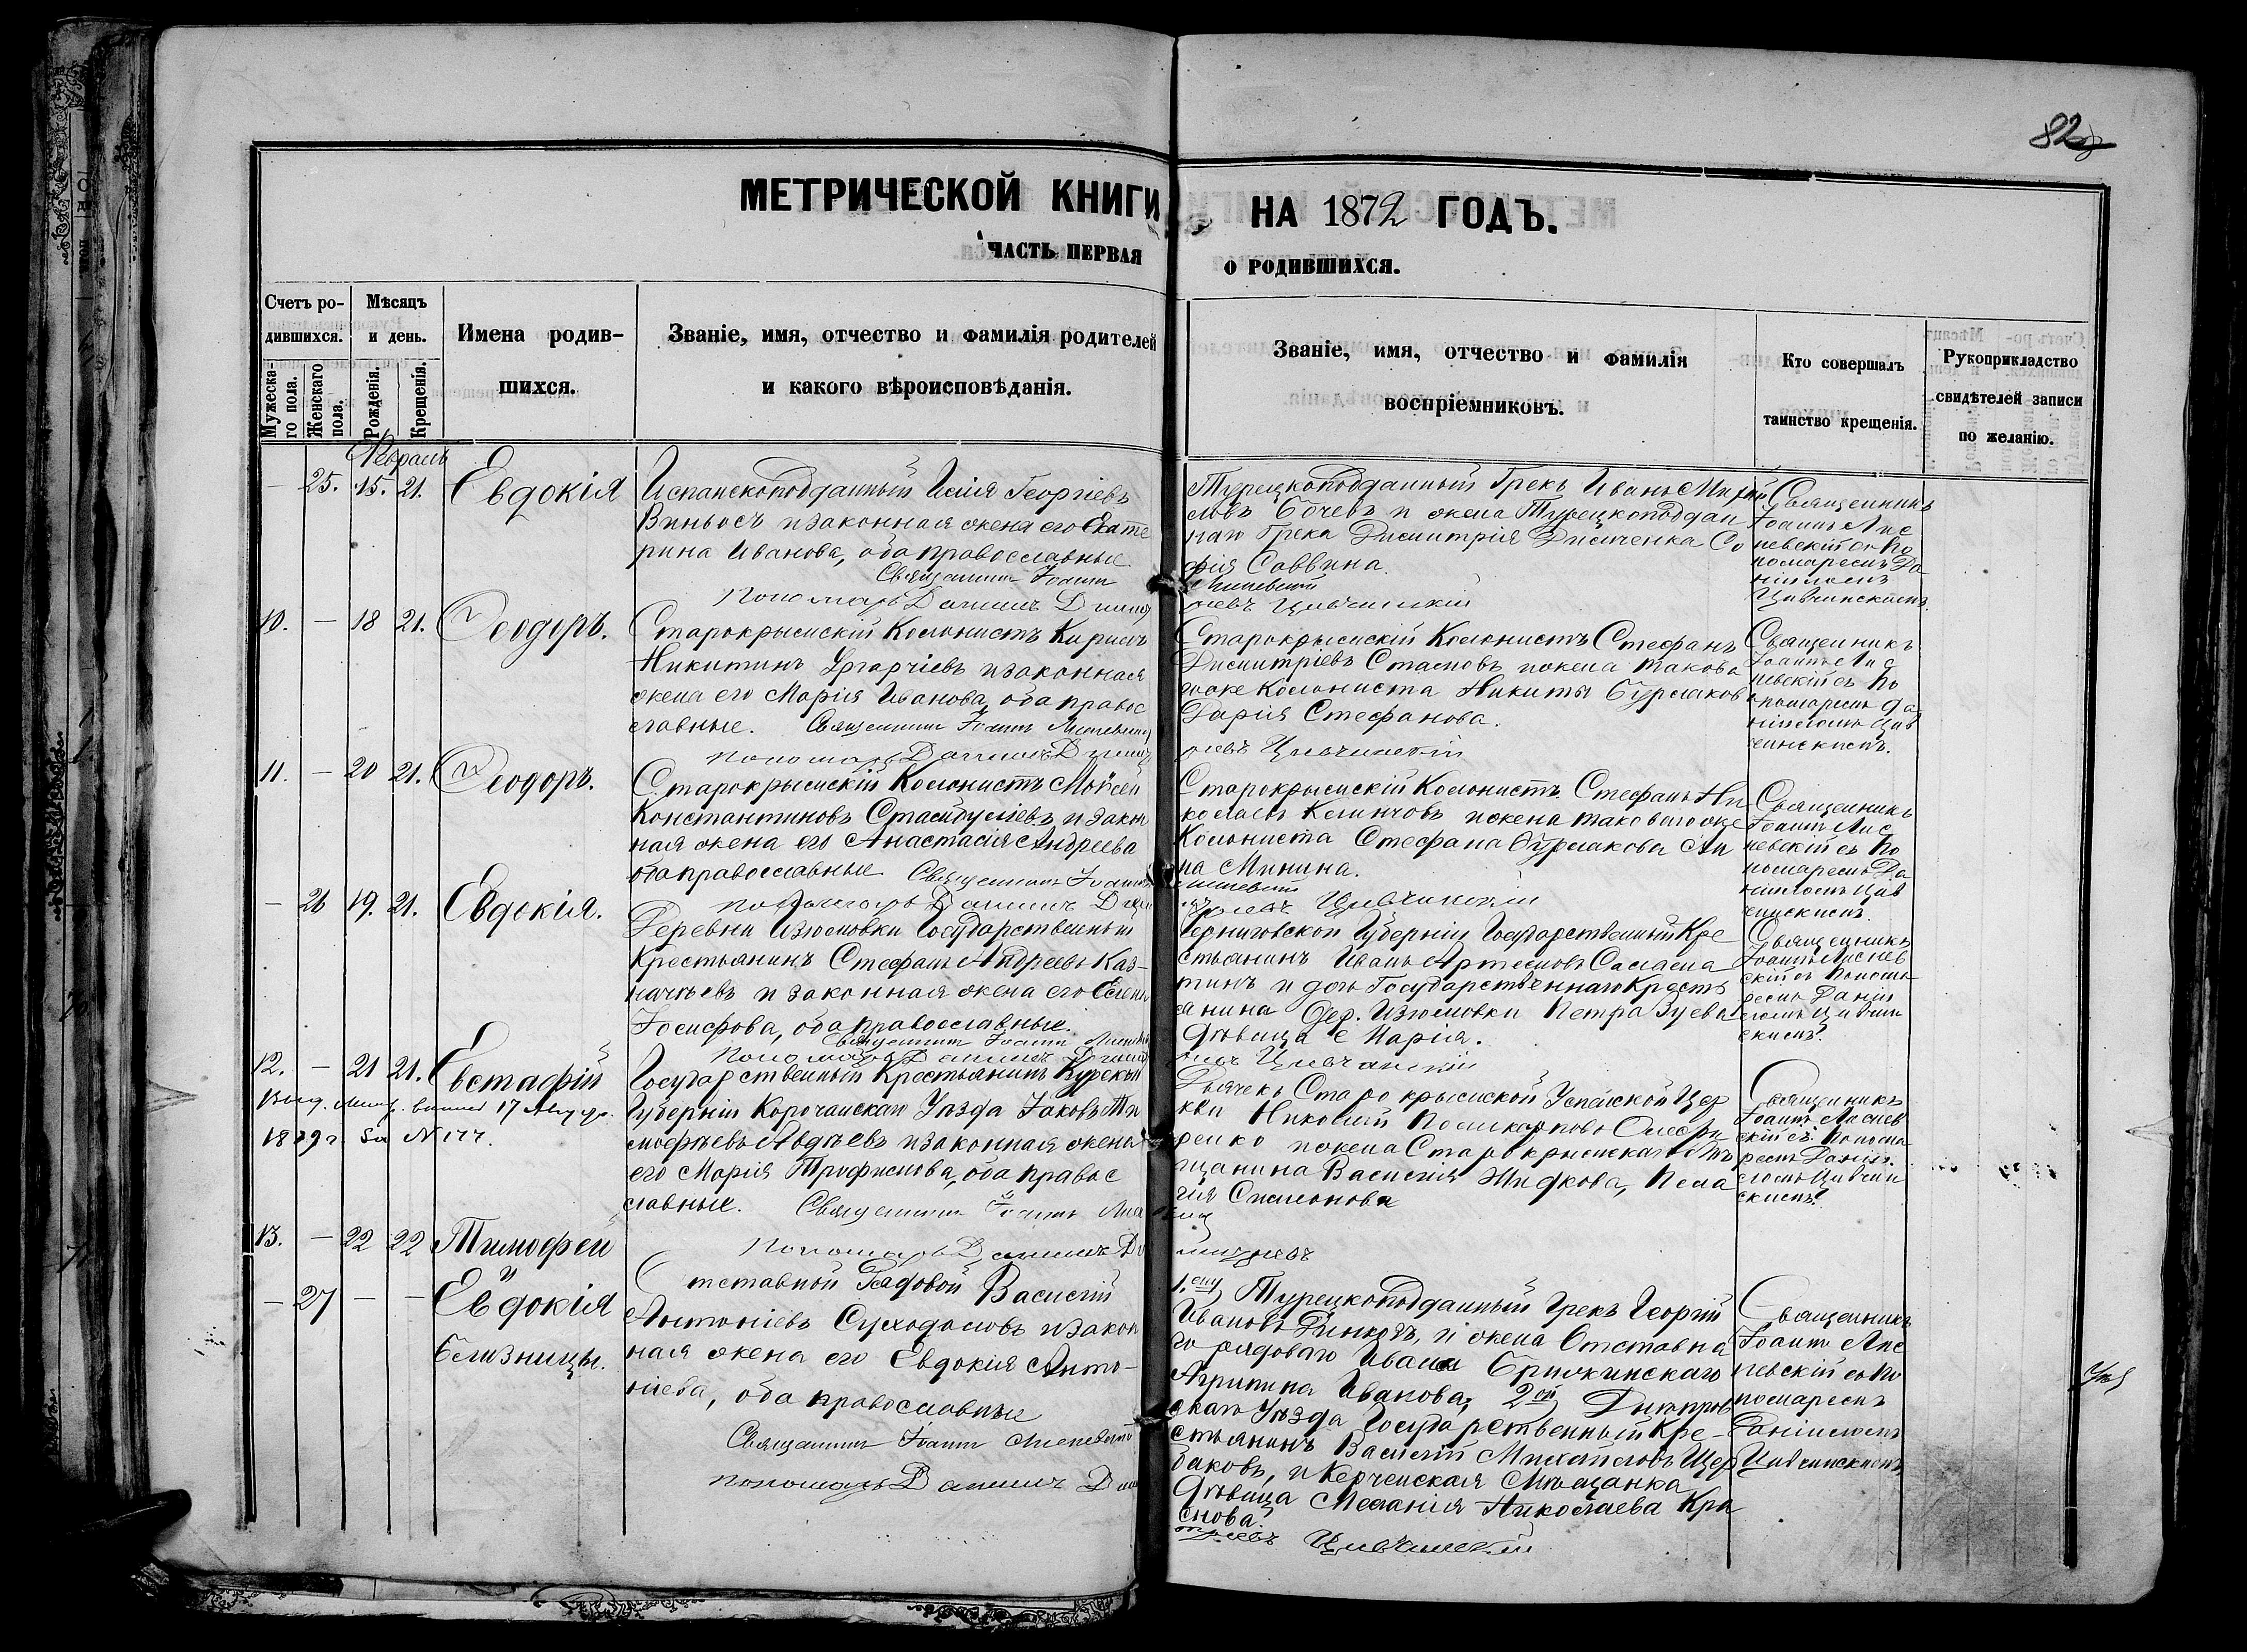 82
МЕТРИЧЕСКОЙ КНИГИ НА 1872 ГОДЪ.
ЧАСТЬ ПЕРВАЯ О РОДИВШИХСЯ.
Счетъ ро-
дившихся.
Мужеска-
го пола.
Женскаго
пола.
Мѣсяцъ
и день.
Рожденія.
Крещенія.
Имена родив-
шихся.
Званіе, имя, отчество и фамилія родителей
и какого вѣроисповѣданія.
Званіе, имя, отчество и фамилія
воспріемниковъ.
Кто совершалъ
таинство крещенія.
Рукоприкладство
свидѣтелей записи
по желанію.
Февраль
— 25. 15. 21.
Евдокія
Испанскоподданный Исаія Георгіевъ
Виньосъ и законная жена его Екате
рина Иванова, оба православные.
Священникъ Іоаннъ
Пономарь Даніилъ
Турецкоподданный Грекъ Иванъ
Бочевъ и жена Турецкоподдан
наго Грека Димитрія Димченка Со
фія Саввина.
Цивчинскій
Священникъ
Іоаннъ Лис
невскій съ По
номаремъ Да
ніиломъ
Цивчинскимъ
10. — 18 21.
Ѳеодоръ.
Старокрымскій Колонистъ Кирилъ
Никитинъ и законная
жена его Марія Иванова, оба правос
лавные. Священникъ Іоаннъ Лисневскій
Пономарь Даніилъ
Старокрымскій Колонистъ Стефанъ
Димитріевъ Стамовъ и жена такова
гоже Колониста Никиты Бурлаков
Дарія Стефанова.
Цивчинскій
Священникъ
Іоаннъ Лис
невскій съ По
номаремъ Да
ніиломъ Цив
чинскимъ.
11. — 20 21.
Ѳеодоръ.
Старокрымскій Колонистъ Моѵсей
Константиновъ и закон
ная жена его Анастасія Андреева
оба православные Священникъ Іоаннъ
Пономарь Даніилъ
Старокрымскій Колонистъ Стефанъ Ни
колаевъ Келинчовъ и жена таковагоже
Колониста Стефана Бурлакова Ан
на Минина.
Цивчинскій
Священникъ
Іоаннъ Лис
невскій съ По
номаремъ Да
ніиломъ Цив
чинскимъ.
— 26 19. 21.
Евдокія.
Деревни Изюмовки Государственный
Крестьянинъ Стефанъ Андреевъ Каз-
начѣевъ и законная жена его Елена
Іосифова, оба православные.
Священникъ Іоаннъ
Пономарь Даніилъ
Черниговской Губерніи Государственный Кре
стьянинъ Иванъ Артемовъ
тинъ и дочь Государственнаго Кресть
янина дер. Изюмовки Петра Зуева
дѣвица Марія.
Цивчинскій
Священникъ
Іоаннъ Лиснев
скій съ Понома
ремъ Даніи
ломъ Цивчин
скимъ.
12. — 21 21.
Евстафій
17
1889 г за № 177.
Государственный Крестьянинъ Курской
Губерніи Корочанскаго Уѣзда Іаковъ Ти
мофѣевъ Авдѣевъ и законная жена
его Марія Трофимова, оба правос
лавные. Священникъ Іоаннъ
Пономарь Даніилъ
Дьячекъ Старокрымской Успенской Цер
кви Николай Поликарповъ
и жена Старокрымскаго
щанина Василія Жидкова, Пела
гія Симонова
Священникъ
Іоаннъ Лиснев
скій съ Понома
ремъ Даніи
ломъ Цивчин
скимъ.
13. — 22 22
Тимофей
— 27 — —
и
Евдокія
близнецы.
Отставной Рядовой Василій
Антоніевъ Суходоловъ и закон
ная жена его Евдокія Анто-
ніева, оба православные
Священникъ Іоаннъ Лисневскій
Пономарь Даніилъ
1. Турецкоподданный Грекъ Георгій
Ивановъ и жена Отставна
го рядоваго Ивана
Агрипина Иванова, 2 Днѣпров
скаго Уѣзда Государственный Кре-
стьянинъ Василій Михайловъ Щер
баковъ, и Керченская Мѣщанка
дѣвица Меланія Николаева Кра
снова.
Цивчинскій
Священникъ
Іоаннъ Лис
невскій съ По
номаремъ
Даніиломъ
Цивчинскимъ